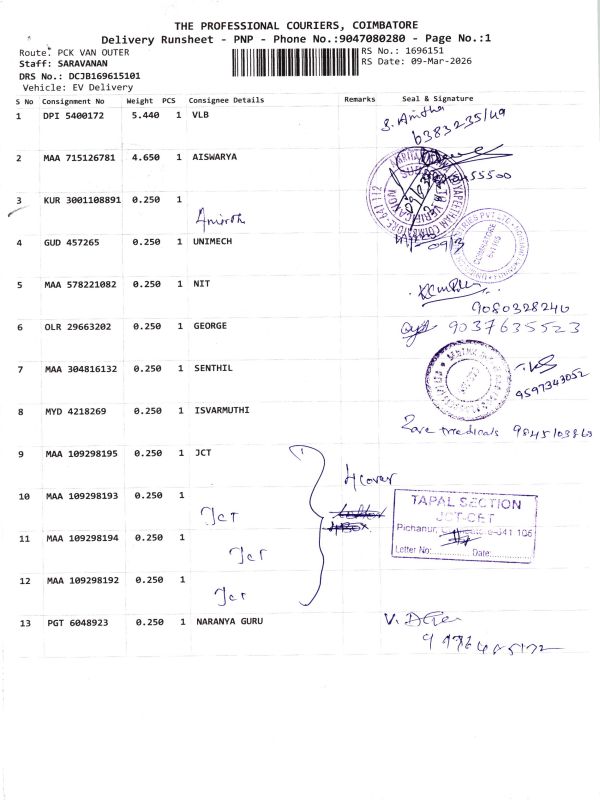 THE PROFESSIONAL COURIERS, COIMBATORE
Delivery Runsheet - PNP - Phone No.:9047080280 - Page No.:1
Route: PCK VAN OUTER
RS No.: 1696151
Staff: SARAVANAN
RS Date: 09-Mar-2026
DRS No.: DCJB169615101
Vehicle: EV Delivery
S No Consignment No Weight PCS Consignee Details Remarks Seal & Signature
1 DPI 5400172 5.440 1 VLB
S. Anitha
6383235149
2 MAA 715126781 4.650 1 AISWARYA
3 KUR 3001108891 0.250 1
Amirth
4 GUD 457265 0.250 1 UNIMECH
5 MAA 578221082 0.250 1 NIT
9080328240
6 OLR 29663202 0.250 1 GEORGE
9037635523
7 MAA 304816132 0.250 1 SENTHIL
9597343052
8 MYD 4218269 0.250 1 ISVARMUTHI
medicals
9 MAA 109298195 0.250 1 JCT
4 cover
10 MAA 109298193 0.250 1
JCT
TAPAL SECTION
JCT-CET
Pichanur, 641 105
Letter No: Date:
11 MAA 109298194 0.250 1
JCT
12 MAA 109298192 0.250 1
JCT
13 PGT 6048923 0.250 1 NARANYA GURU